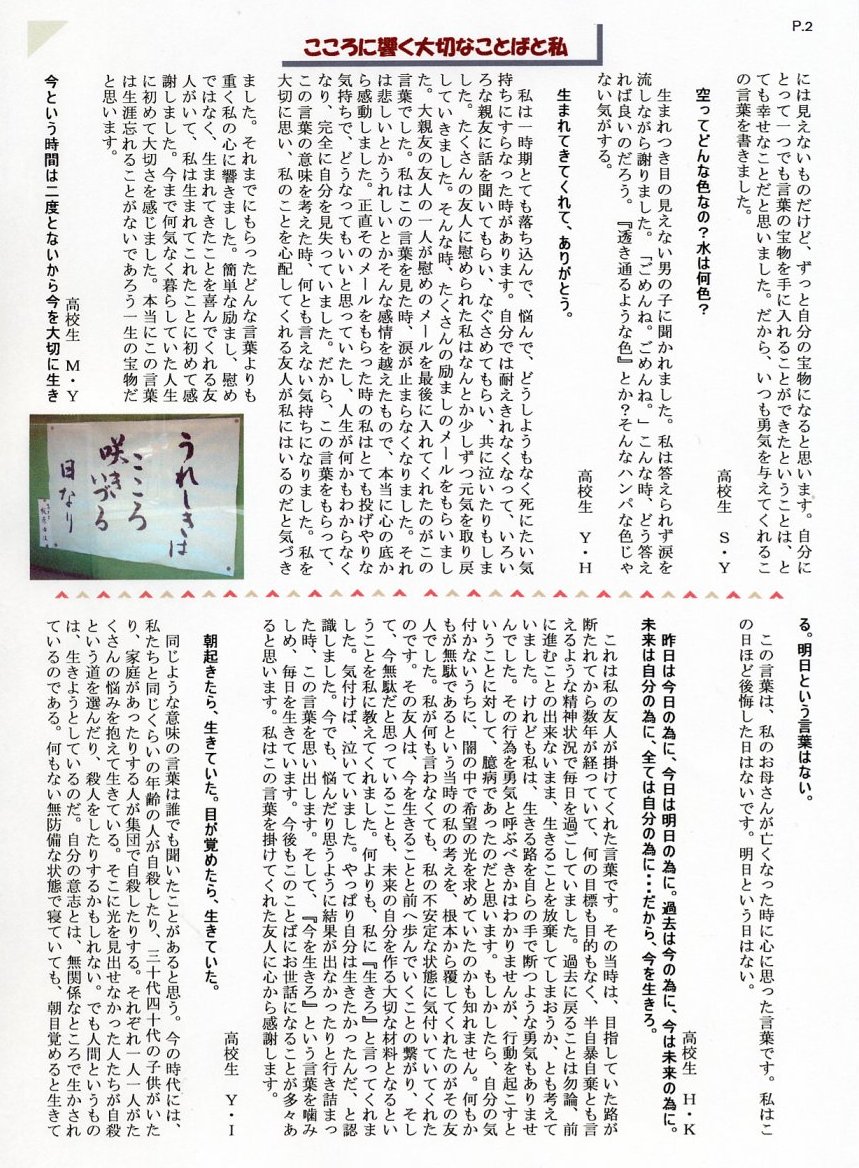 P.2
こころに響く大切なことばと私
には見えないものだけど、ずっと自分の宝物になると思います。自分に
とって一つでも言葉の宝物を手に入れることができたということは、と
ても幸せなことだと思いました。だから、いつも勇気を与えてくれるこ
の言葉を書きました。
高校生　S・Y
空ってどんな色なの?水は何色?
生まれつき目の見えない男の子に聞かれました。私は答えられず涙を
流しながら謝りました。「ごめんね。ごめんね。」こんな時、どう答え
れば良いのだろう。『透き通るような色』とか?そんなハンパな色じゃ
ない気がする。
高校生　Y・H
生まれてきてくれて、ありがとう。
私は一時期とても落ち込んで、悩んで、どうしようもなく死にたい気
持ちにすらなった時があります。自分では耐えきれなくなって、いろい
ろな親友に話を聞いてもらい、なぐさめてもらい、共に泣いたりもしま
した。たくさんの友人に慰められた私はなんとか少しずつ元気を取り戻
していきました。そんな時、たくさんの励ましのメールをもらいまし
た。大親友の友人の一人が慰めのメールを最後に入れてくれたのがこの
言葉でした。私はこの言葉を見た時、涙が止まらなくなりました。それ
は悲しいとかうれしいとかそんな感情を越えたもので、本当に心の底か
ら感動しました。正直そのメールをもらった時の私はとても投げやりな
気持ちで、どうなってもいいと思っていたし、人生が何かもわからなく
なり、完全に自分を見失っていました。だから、この言葉をもらって、
この言葉の意味を考えた時、何とも言えない気持ちになりました。私を
大切に思い、私のことを心配してくれる友人が私にはいるのだと気づき
ました。それまでにもらったどんな言葉よりも
重く私の心に響きました。簡単な励まし、慰め
ではなく、生まれてきたことを喜んでくれる友
人がいて、私は生まれてこれたことに初めて感
謝しました。今まで何気なく暮らしていた人生
に初めて大切さを感じました。本当にこの言葉
は生涯忘れることがないであろう一生の宝物だ
と思います。
高校生　M・Y
今という時間は二度とないから今を大切に生き
うれしきは
こころ
咲きいづる
日なり
る。明日という言葉はない。
この言葉は、私のお母さんが亡くなった時に心に思った言葉です。私はこ
の日ほど後悔した日はないです。明日という日はない。
高校生　H・K
昨日は今日の為に、今日は明日の為に。過去は今の為に、今は未来の為に。
未来は自分の為に、全ては自分の為に・・・だから、今を生きろ。
これは私の友人が掛けてくれた言葉です。その当時は、目指していた路が
断たれてから数年が経っていて、何の目標も目的もなく、半自暴自棄とも言
えるような精神状況で毎日を過ごしていました。過去に戻ることは勿論、前
に進むことの出来ないまま、生きることを放棄してしまおうか、とも考えて
いました。けれども私は、生きる路を自らの手で断つような勇気もありませ
んでした。その行為を勇気と呼ぶべきかはわかりませんが、行動を起こすと
いうことに対して、臆病であったのだと思います。もしかしたら、自分の気
付かないうちに、闇の中で希望の光を求めていたのかも知れません。何もか
もが無駄であるという当時の私の考えを、根本から覆してくれたのがその友
人でした。私が何も言わなくても、私の不安定な状態に気付いていてくれた
のです。その友人は、今を生きることと前へ歩んでいくことの繋がり、そし
て、今無駄だと思っていることも、未来の自分を作る大切な材料となるとい
うことを私に教えてくれました。何よりも、私に『生きろ』と言ってくれま
した。気付けば、泣いていました。やっぱり自分は生きたかったんだ、と認
識しました。今でも、悩んだり思うように結果が出なかったりと行き詰まっ
た時、この言葉を思い出します。そして、『今を生きろ』という言葉を噛み
しめ、毎日を生きています。今後もこのことばにお世話になることが多々あ
ると思います。私はこの言葉を掛けてくれた友人に心から感謝します。
高校生　Y・I
朝起きたら、生きていた。目が覚めたら、生きていた。
同じような意味の言葉は誰でも聞いたことがあると思う。今の時代には、
私たちと同じくらいの年齢の人が自殺したり、三十代四十代の子供がいた
り、家庭があったりする人が集団で自殺したりする。それぞれ一人一人がた
くさんの悩みを抱えて生きている。そこに光を見出せなかった人たちが自殺
という道を選んだり、殺人をしたりするかもしれない。でも人間というもの
は、生きようとしているのだ。自分の意志とは、無関係なところで生かされ
ているのである。何もない無防備な状態で寝ていても、朝目覚めると生きて